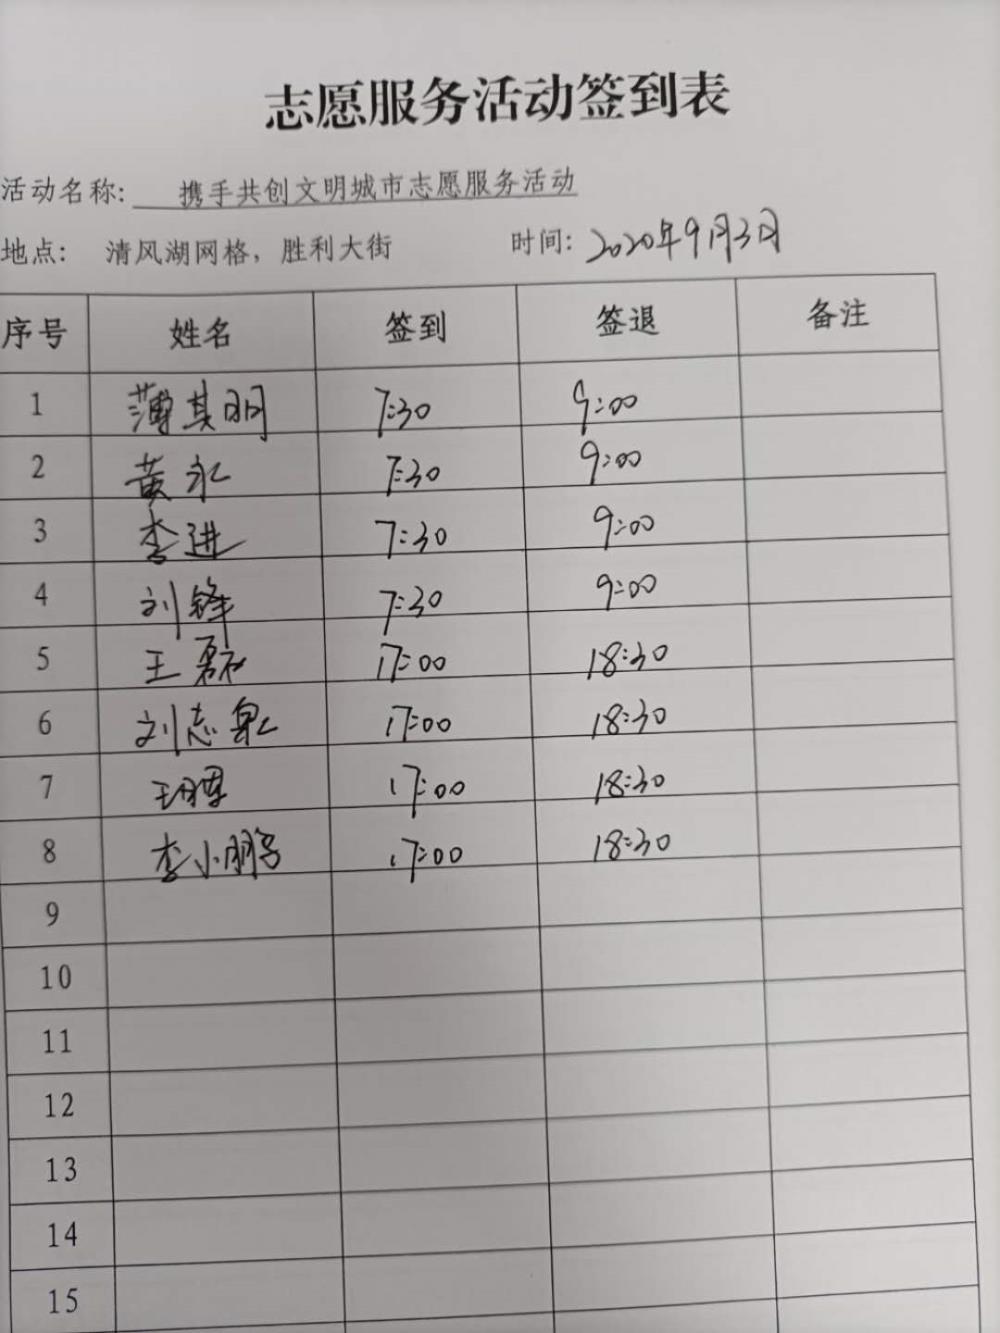 志愿服务活动签到表
活动名称: 携手共创文明城市志愿服务活动
地点: 清风湖网格，胜利大街 时间: 2020年9月3日
序号 姓名 签到 签退 备注
1 薄其明 7:30 9:00
2 黄永 7:30 9:00
3 李进 7:30 9:00
4 刘锋 7:30 9:00
5 王磊 17:00 18:30
6 刘志泉 17:00 18:30
7 17:00 18:30
8 李小鹏 17:00 18:30
9
10
11
12
13
14
15